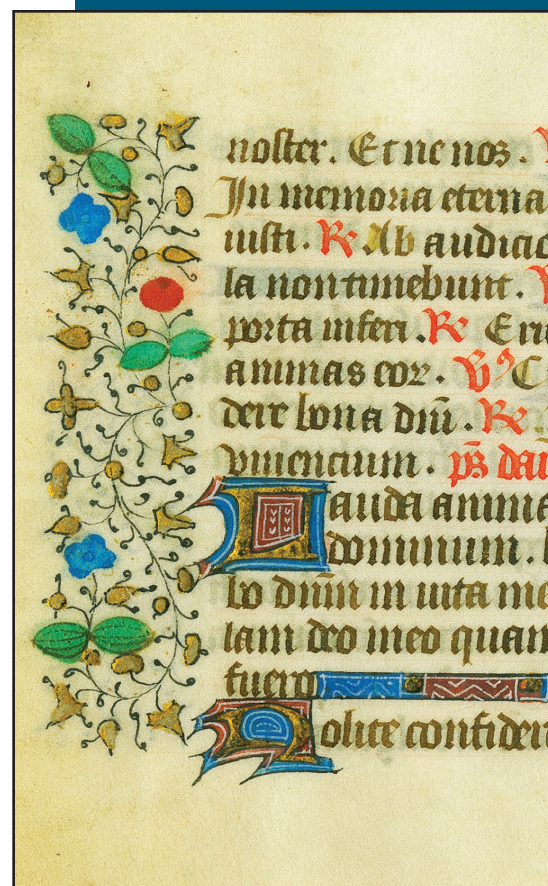 noster. Et ne nos.
In memoria eterna
iusti. R Ab audicio
la non timebunt.
porta inferi. R Eru
animas eoꝝ. V C
dere bona dn̄i. R
viuencium. ps̄ dau
Lauda anima
dominum.
bo dn̄m in uita me
lam deo meo quam
fuero
Nolite confider